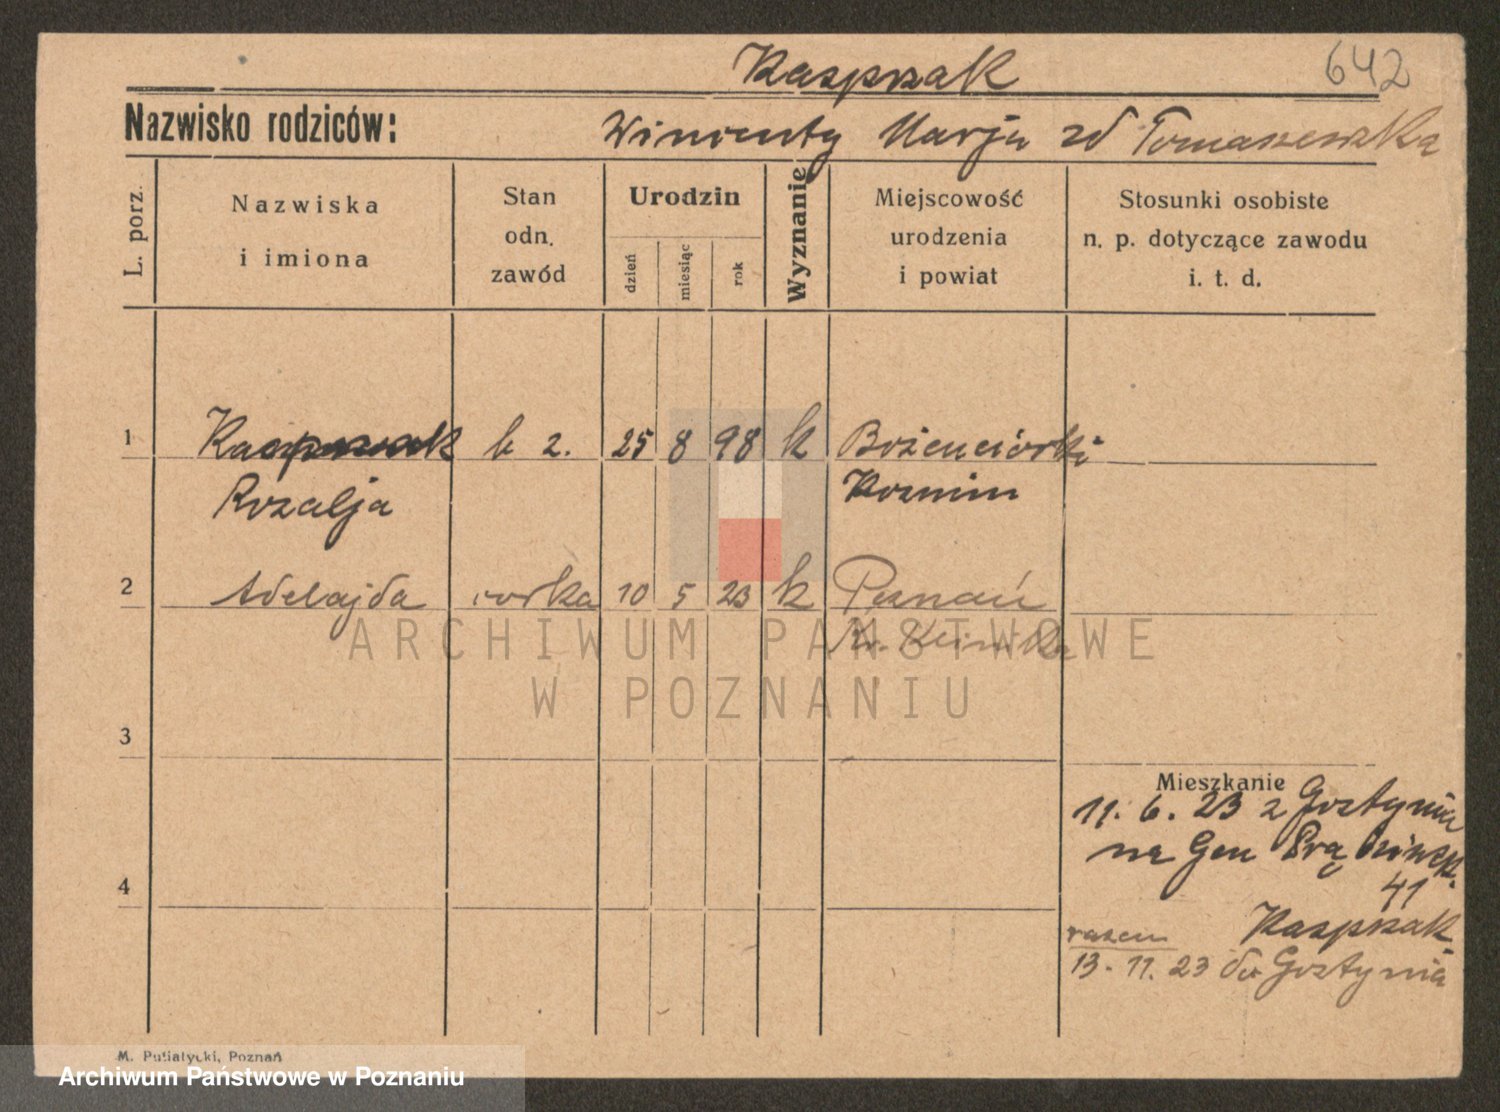 Kasprzak
642
Nazwisko rodziców: Wincenty Marja zd Tomaszewska
L. porz.
Nazwiska
i imiona
Stan
odn.
zawód
Urodzin
dzień
miesiąc
rok
Wyznanie
Miejscowość
urodzenia
i powiat
Stosunki osobiste
n. p. dotyczące zawodu
i. t. d.
1 Kasprzak b 2. 25 8 98 k
Rozalja Kozmin
2 Adelajda corka 10 5 23 k Poznań
Kr. Klinika
ARCHIWUM PAŃSTWOWE
W POZNANIU
3
Mieszkanie
11. 6. 23 z Gostynia
na Gen
4
41
razem Kasprzak
13. 11. 23 do Gostynia
M. Putiatycki, Poznań
Archiwum Państwowe w Poznaniu